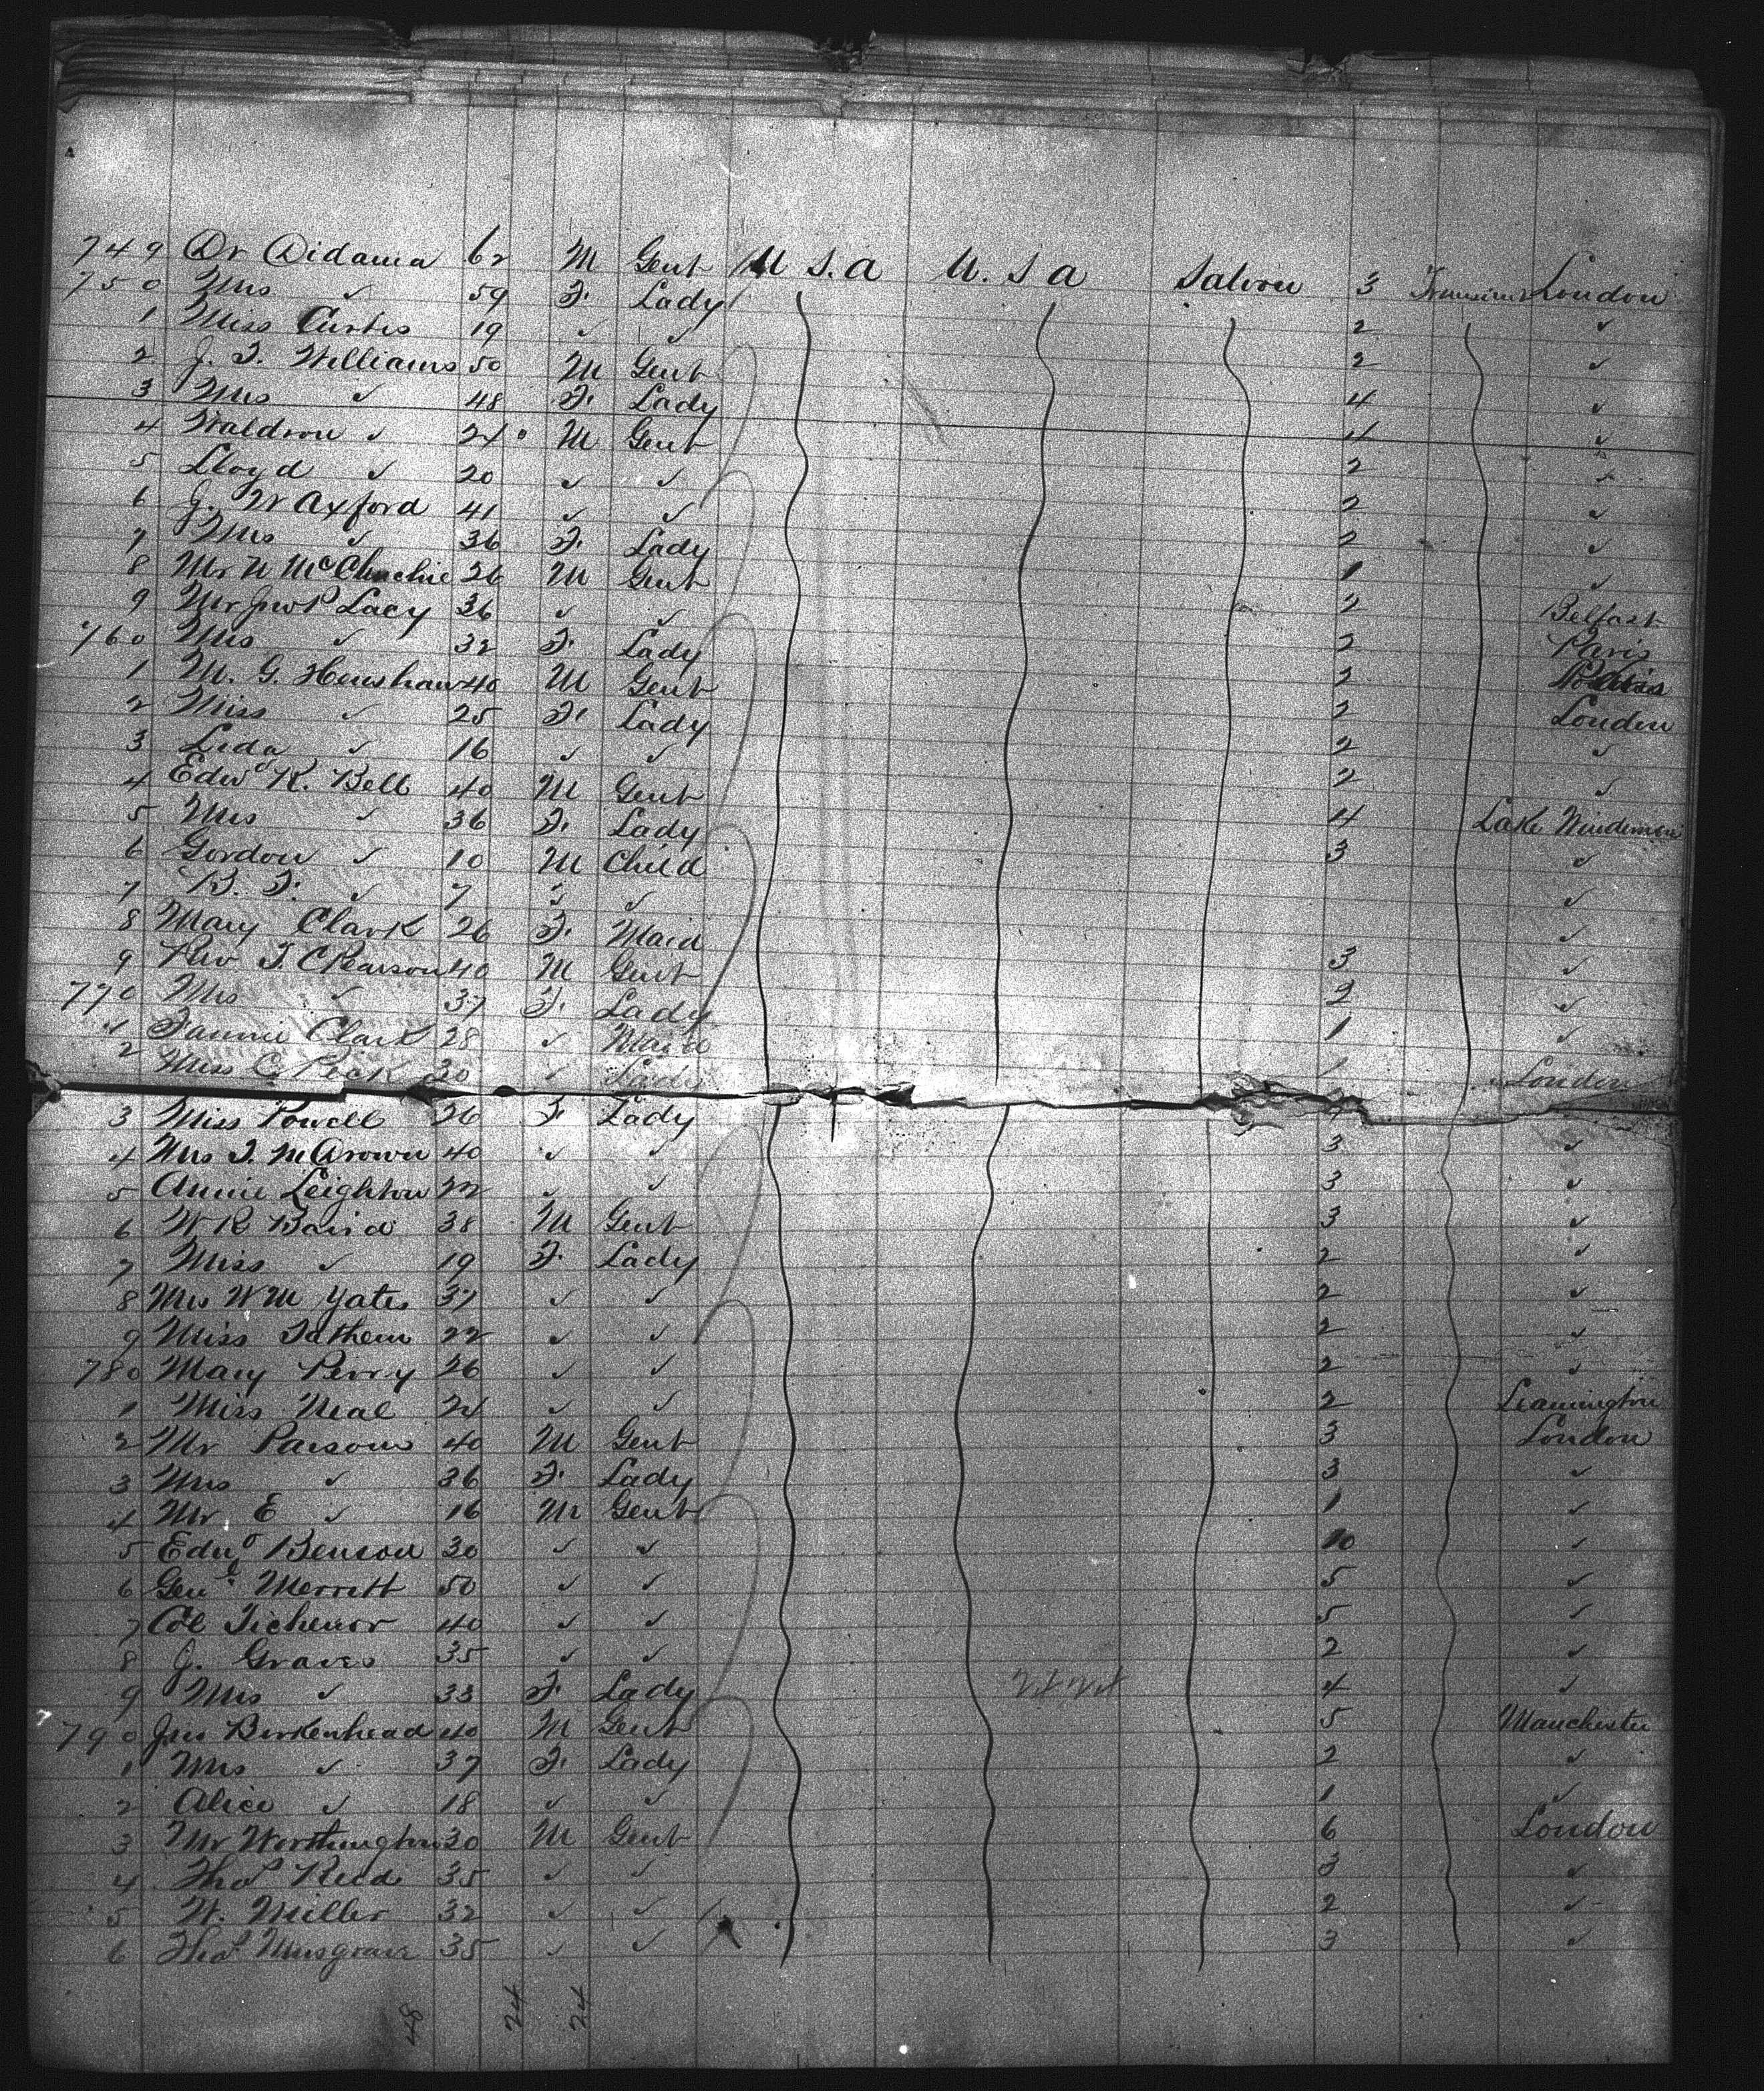 749 Dr Didama 62 M Gent U S. A U. S A Saloon 3 Transient London
750 Mrs ✓ 59 F. Lady
1 Miss Curtis 19 ✓ ✓ 2 ✓
2 J. T. Williams 50 M Gent 2 ✓
3 Mrs ✓ 48 F. Lady 4 ✓
4 Waldron ✓ 24 M Gent 4 ✓
5 Lloyd ✓ 20 ✓ ✓ 2 ✓
6 J. W Axford 41 ✓ ✓ 2 ✓
7 Mrs ✓ 36 F. Lady 2 ✓
8 Mr W McCluchie 26 M Gent 1 ✓
9 Mr Jno P Lacy 36 ✓ ✓ 2 Belfast
760 Mrs ✓ 32 F. Lady 2 Paris
1 M. G. Henshaw 40 M Gent 2
2 Miss ✓ 25 F. Lady 2 London
3 Leda ✓ 16 ✓ ✓ 2 ✓
4 Edwd R. Bell 40 M Gent 2 ✓
5 Mrs ✓ 36 F. Lady 4 Lake Windemere
6 Gordon ✓ 10 M Child 3 ✓
7 B. F. ✓ 7 ✓ ✓ ✓
8 Mary Clark 26 F. Maid ✓
9 Rev T. C Pearson 40 M Gent 3 ✓
770 Mrs ✓ 37 F. Lady 2 ✓
✓ Fannie Clark 28 ✓ Maid 1 ✓
2 Miss C Peck 30 ✓ Lady 1 London
3 Miss Powell 26 F. Lady
4 Mrs J. McArown 40 ✓ ✓ 3 ✓
5 Annie Leighton 22 ✓ ✓ 3 ✓
6 W R Baird 38 M Gent 3 ✓
7 Miss ✓ 19 F. Lady 2 ✓
8 Mrs W M Yates 37 ✓ ✓ 2 ✓
9 Miss Tathem 22 ✓ ✓ 2 ✓
780 Mary Perry 26 ✓ ✓ 2 ✓
1 Miss Neal 24 ✓ ✓ 2 Leamington
2 Mr Parsons 40 M Gent 3 London
3 Mrs ✓ 36 F. Lady 3 ✓
4 Mr E ✓ 16 M Gent 1 ✓
5 Edwd Benson 30 ✓ ✓ 10 ✓
6 Genl Merritt 50 ✓ ✓ 5 ✓
7 Col Tichenor 40 ✓ ✓ 5 ✓
8 J. Graves 35 ✓ ✓ 2 ✓
9 Mrs ✓ 33 F. Lady 4 ✓
790 Jno Birkenhead 40 M Gent 5 Manchester
1 Mrs ✓ 37 F. Lady 2 ✓
2 Alice ✓ 18 ✓ ✓ 1 ✓
3 Mr Worthington 30 M Gent 6 London
4 Thos Reed 35 ✓ ✓ 3 ✓
5 W. Miller 32 ✓ ✓ 2 ✓
6 Thos Musgrave 35 ✓ ✓ 3 ✓
48 24 24